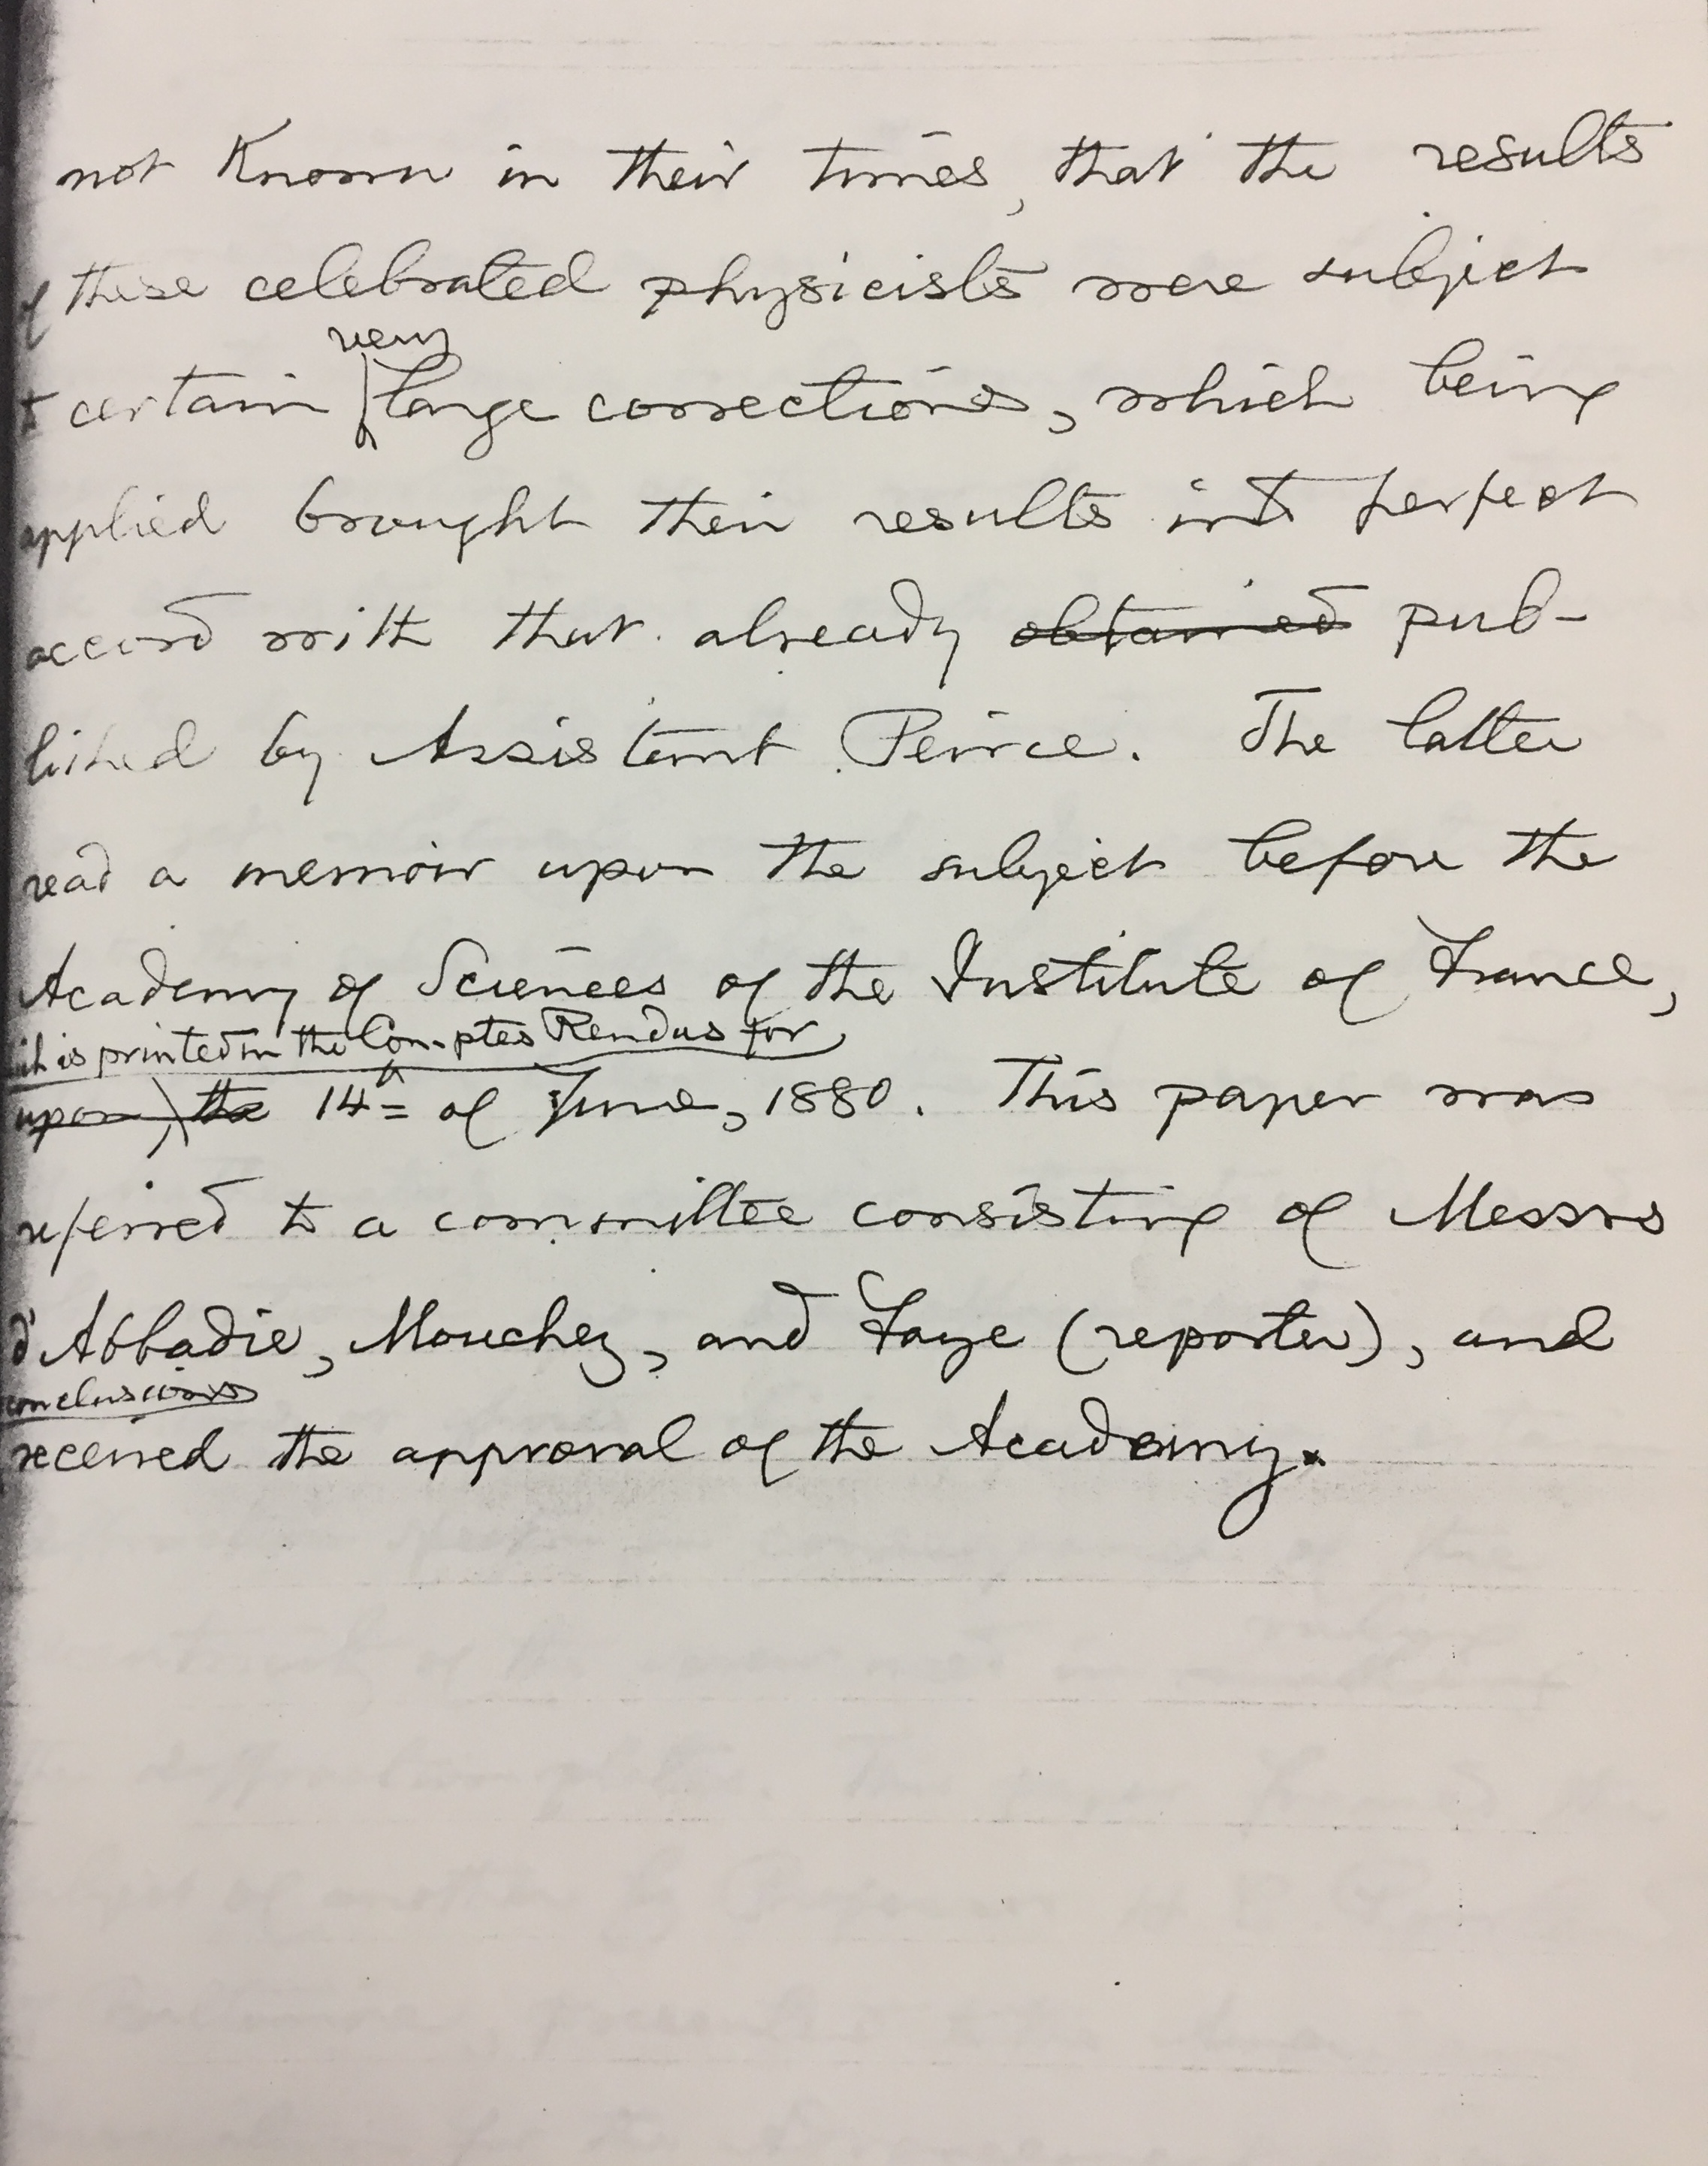 not Known in their times, that the results
of these celebrated physicists were subject
very
to certain large corrections, which being
applied brought their results into perfect
accord with that already obtained pub-
lished by Assistant Peirce. The latter
read a memoir upon the subject before the
Academy of Sciences of the Institute of France,
is printed in the Comptes Rendus for
upon, the 14th of June, 1880. This paper was
referred to a committee consisting of Messrs
d'Abbadie, Mouchez, and Faye (reporter), and
conclusions
received the approval of the Academy.